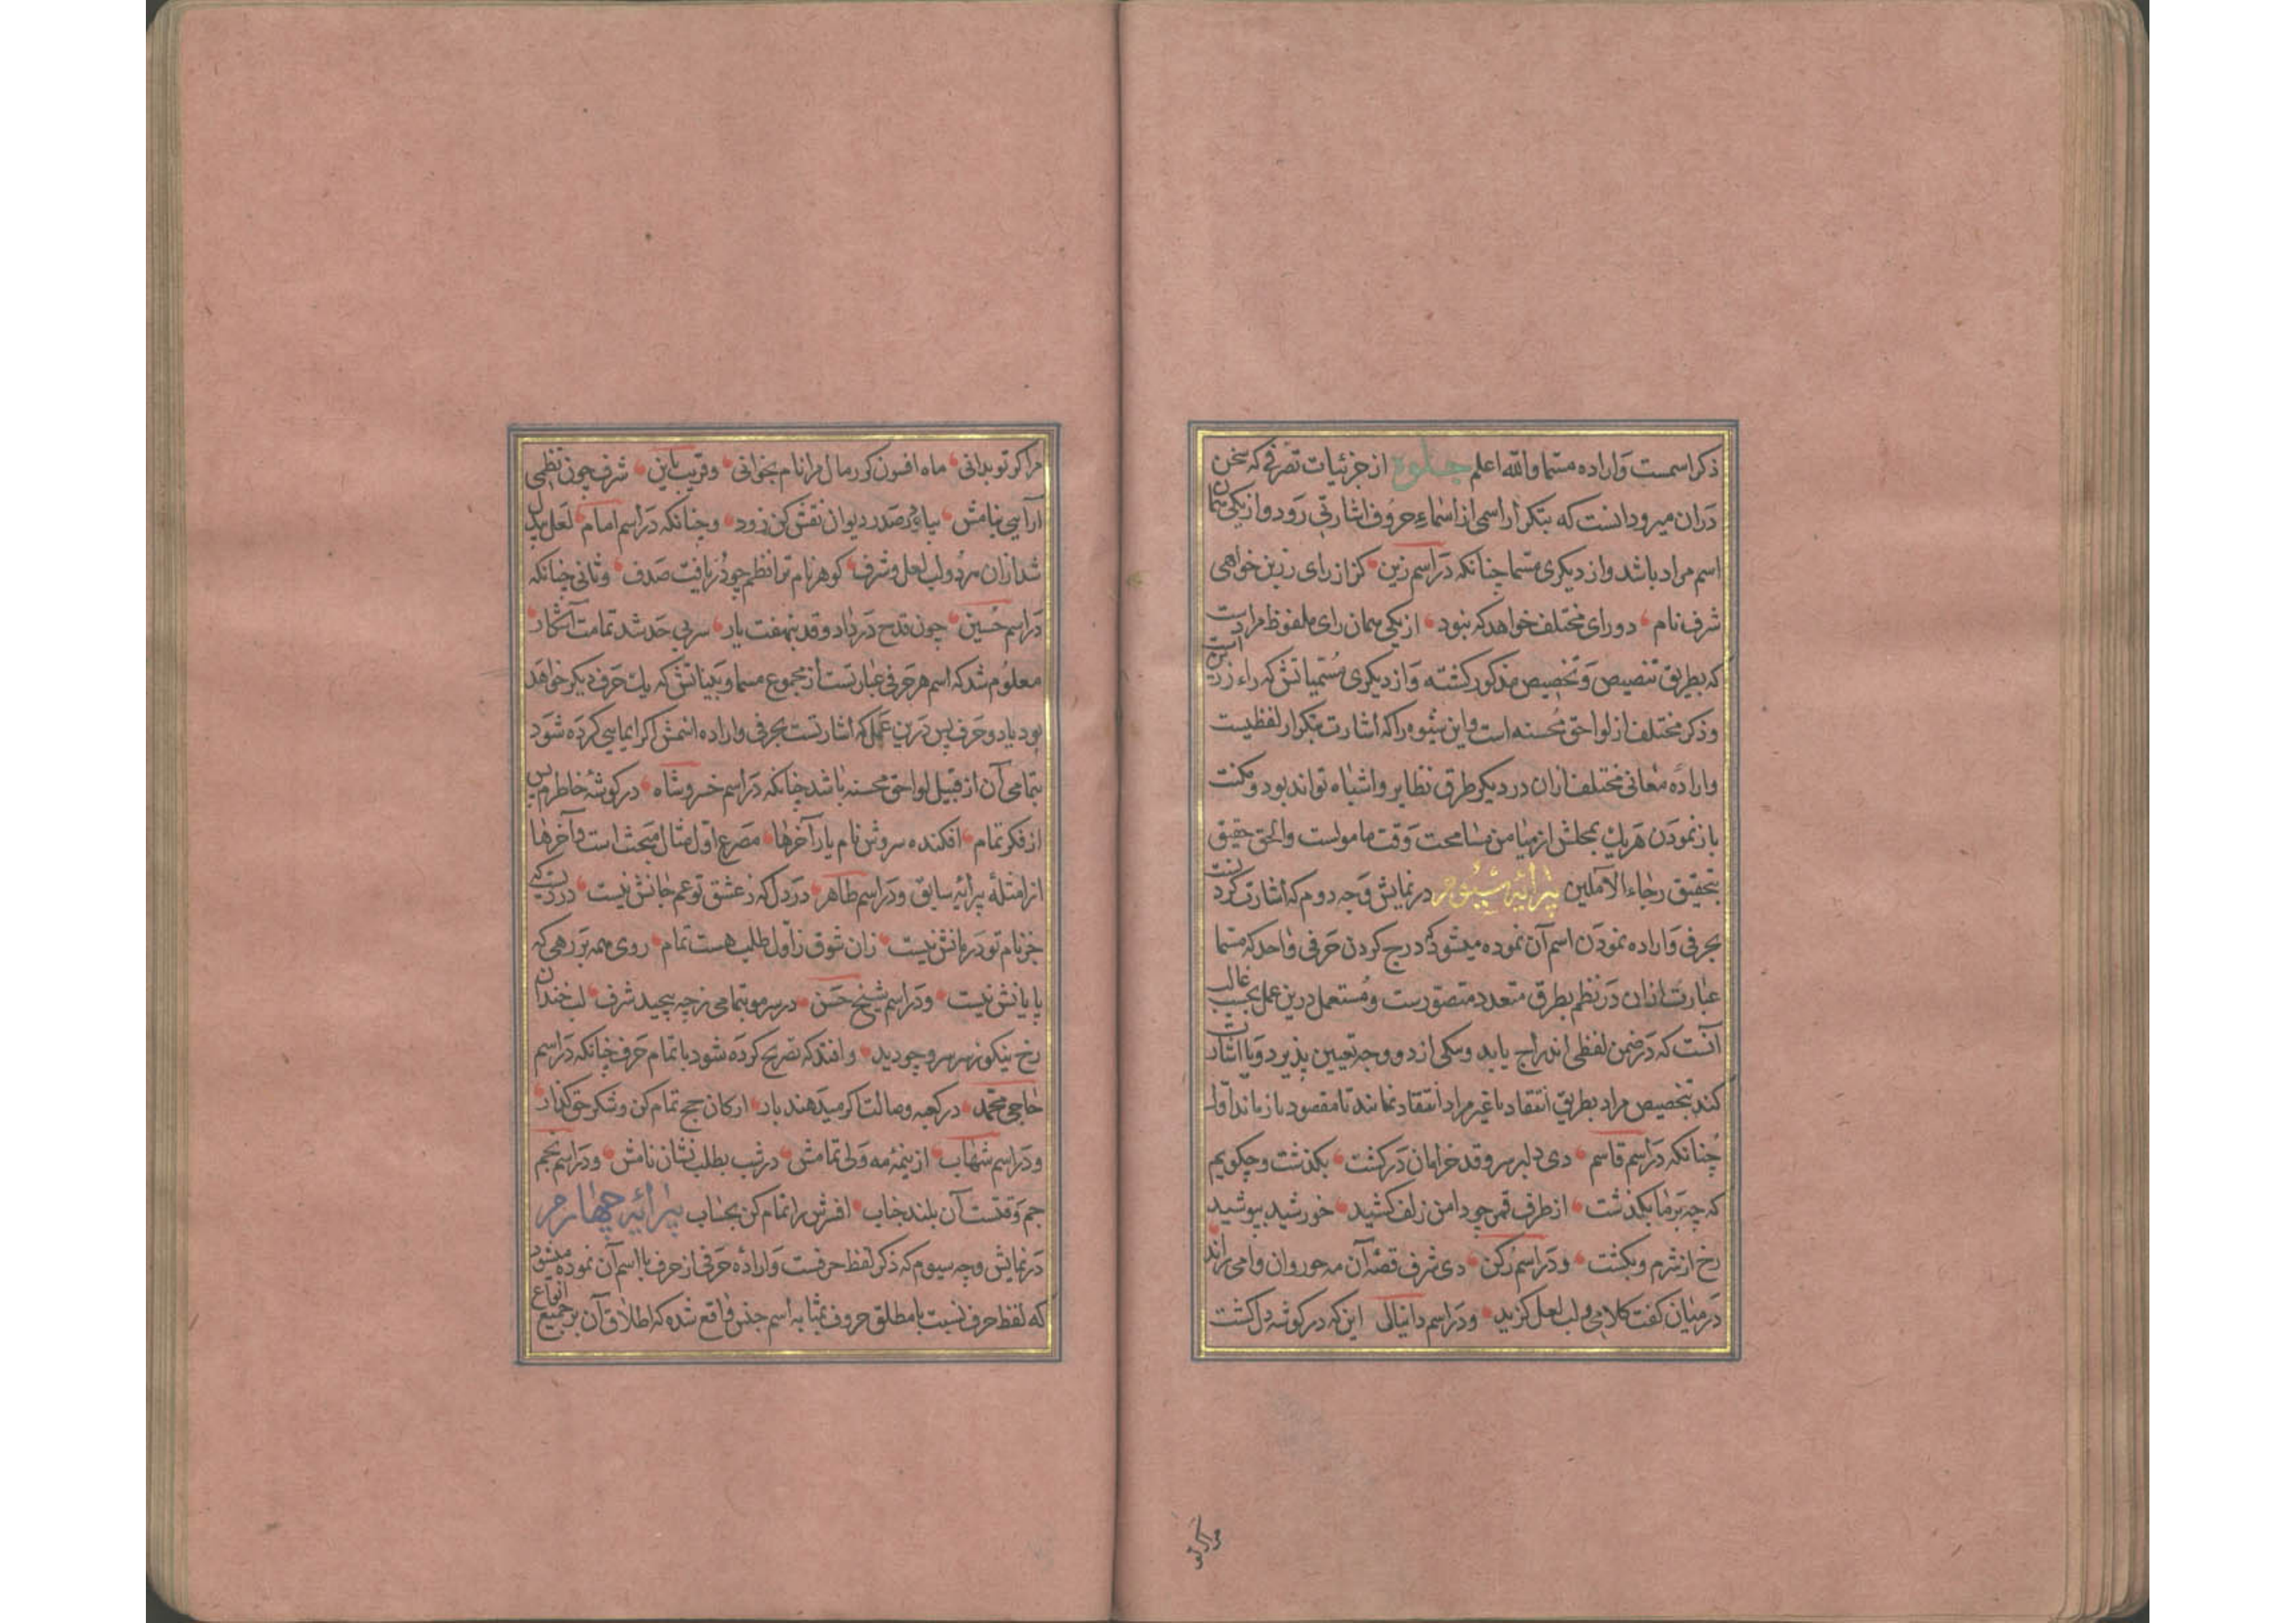 ذکر اسمست و اراده مسما والله اعلم جلوه از جزئیات تصرفی که سخن
دران میرود انست که بتکرار اسمی از اسماء حروف اشارتی رود و از یکی همان
اسم مراد باشد و از دیکری مسما چنانکه در اسم زین کز از رای زرین خواهی
شرف نام دو رای مختلف خواهد که نبود از یکی همان رای ملفوظ مرادست
که بطریق تنصیص و تخصیص مذکور کشته و از دیکری مسمیاتش که راء زرین است
و ذکر مختلف از لواحق محسنه است و این شیوه را که اشارت بتکرار لفظیست
و اراده معانی مختلف ازان در دیکر طرق نظایر و اشباه تواند بود و مکنت
باز نمودن هر یک بمحلش از میامن مسامحت وقت مامولست والحق حقیق
بتحقیق رجاء الآملین پیرائیه سیوم در نمایش وجه دوم که اشارت کردنست
بحرفی و اراده نمودن اسم آن نموده میشود که درج کردن حرفی واحد که مسما
عبارت ازان در نظم بطرق متعدد متصورست و مستعمل درین عمل بحسب غالب
آنست که در ضمن لفظی اندراج یابد و بیکی از دو وجه تعیین پذیرد و یا اشارت
کنند بتخصیص مراد بطریق انتقاد یا غیر مراد انتقاد نمایند تا مقصود باز ماند اول
چنانکه در اسم قاسم دی دلبر سرو قد خرامان در کشت بکذشت و چکویم
که چه بر ما بکذشت از طرف قمر چو دامن زلف کشید خورشید بپوشید
رخ از شرم و بکشت و در اسم رکن دی شرف قصه آن مه حوروان وامی راند
در میان کفت کلامی و لب لعل کزید و در اسم دانیالی این که در کوشه دل کشت
مرا کر تو
مرا کر تو بدانی ماه افسون کر رمال مرا نام بخوانی و قریب باین شرف چون نظمی
آرایی بنامش بیا و در صدر دیوان نقش کن زود و چنانکه در اسم امام لعل بیدل
شد ازان مرد و لب لعل و شرف کوهر نام ترا نظم چو در یافت صدف و ثانی چنانکه
در اسم حسین چون قدح در داد و قد بنهفت یار سر بی حد شد تمامت آشکار
معلوم شد که اسم هر حرفی عبارتست از مجموع مسما و بیناتش که یک حرف دیکر خواهد
بود یا دو حرف پس درین عمل که اشارتست بحرفی و اراده اسمش اکر ایمایی کرده شود
بتمامی آن از قبیل لواحق محسنه باشد چنانکه در اسم خسرو شاه در کوشه خاطرم پس
از فکر تمام افکنده سروش نام یار آخرها مصرع اول مثال مبحث است و آخرها
از امثله پیرائیه سابق و در اسم طاهر در دل که ز عشق تو غم جانش نیست دردیست که
جز نام تو درمانش نیست زان شوق ز اول طلب هست تمام روی همه بر رهی که
پایانش نیست و در اسم شیخ حسن در سر مو بتمامی ز چه پیچید شرف لب خندان
رخ نیکو ز سر سرو چو دید و افتد که تصریح کرده شود باتمام حرف چنانکه در اسم
حاجی محمد در کعبه وصالت اکر میدهند بار ارکان حج تمام کن و شکر حق کذار
و در اسم شهاب از نیمه مه ولی تمامش در شب بطلب نشان نامش و در اسم نجم
جم وقتست آن بلند جناب افسرش را تمام کن بحساب پیرائیه چهارم
در نمایش وجه سیوم که ذکر لفظ حرفست و اراده حرفی از حرف با اسم آن نموده میشود
که لفظ حرف نسبت با مطلق حروف بمثابه اسم جنس واقع شده که اطلاق آن بر جمیع انواع